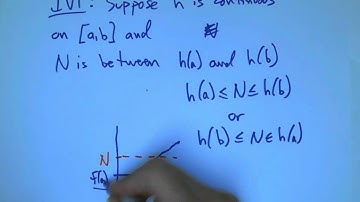 IVT: Suppose h is continuous
on [a,b] and
N is between h(a) and h(b)
h(a) ≤ N ≤ h(b)
or
h(b) ≤ N ≤ h(a)
N
f(a)